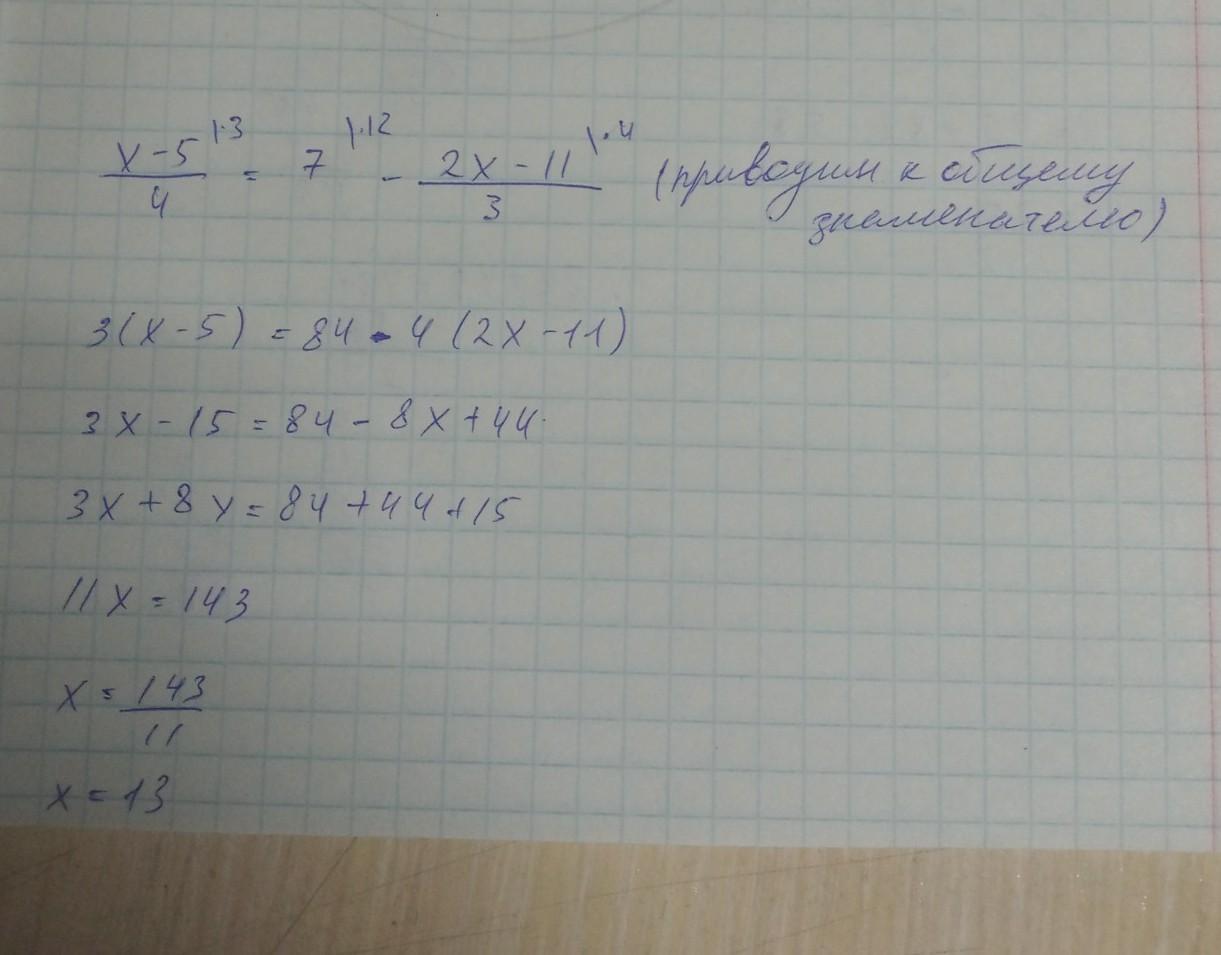 x-5/4 |·3 = 7 |·12 - 2x-11/3 |·4 (приводим к общему
знаменателю)
3(x-5) = 84 - 4(2x-11)
3x-15 = 84 - 8x+44
3x+8x = 84+44+15
11x = 143
x = 143/11
x = 13